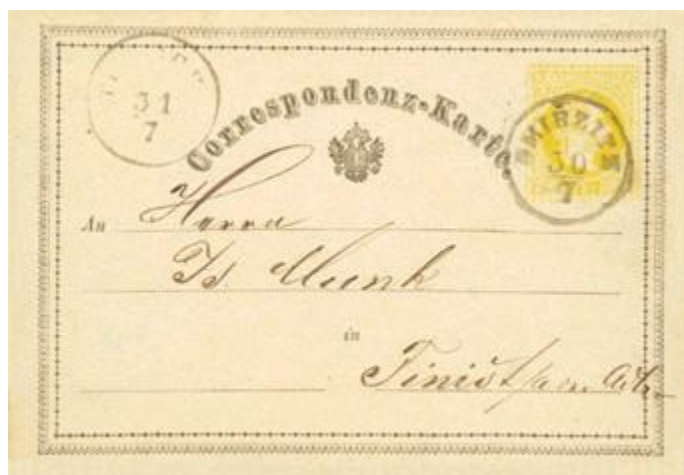 Correspondenz-Karte.
SMIRZITZ
30
7
31
7
An Herrn
Is. Munk
in
Tinist